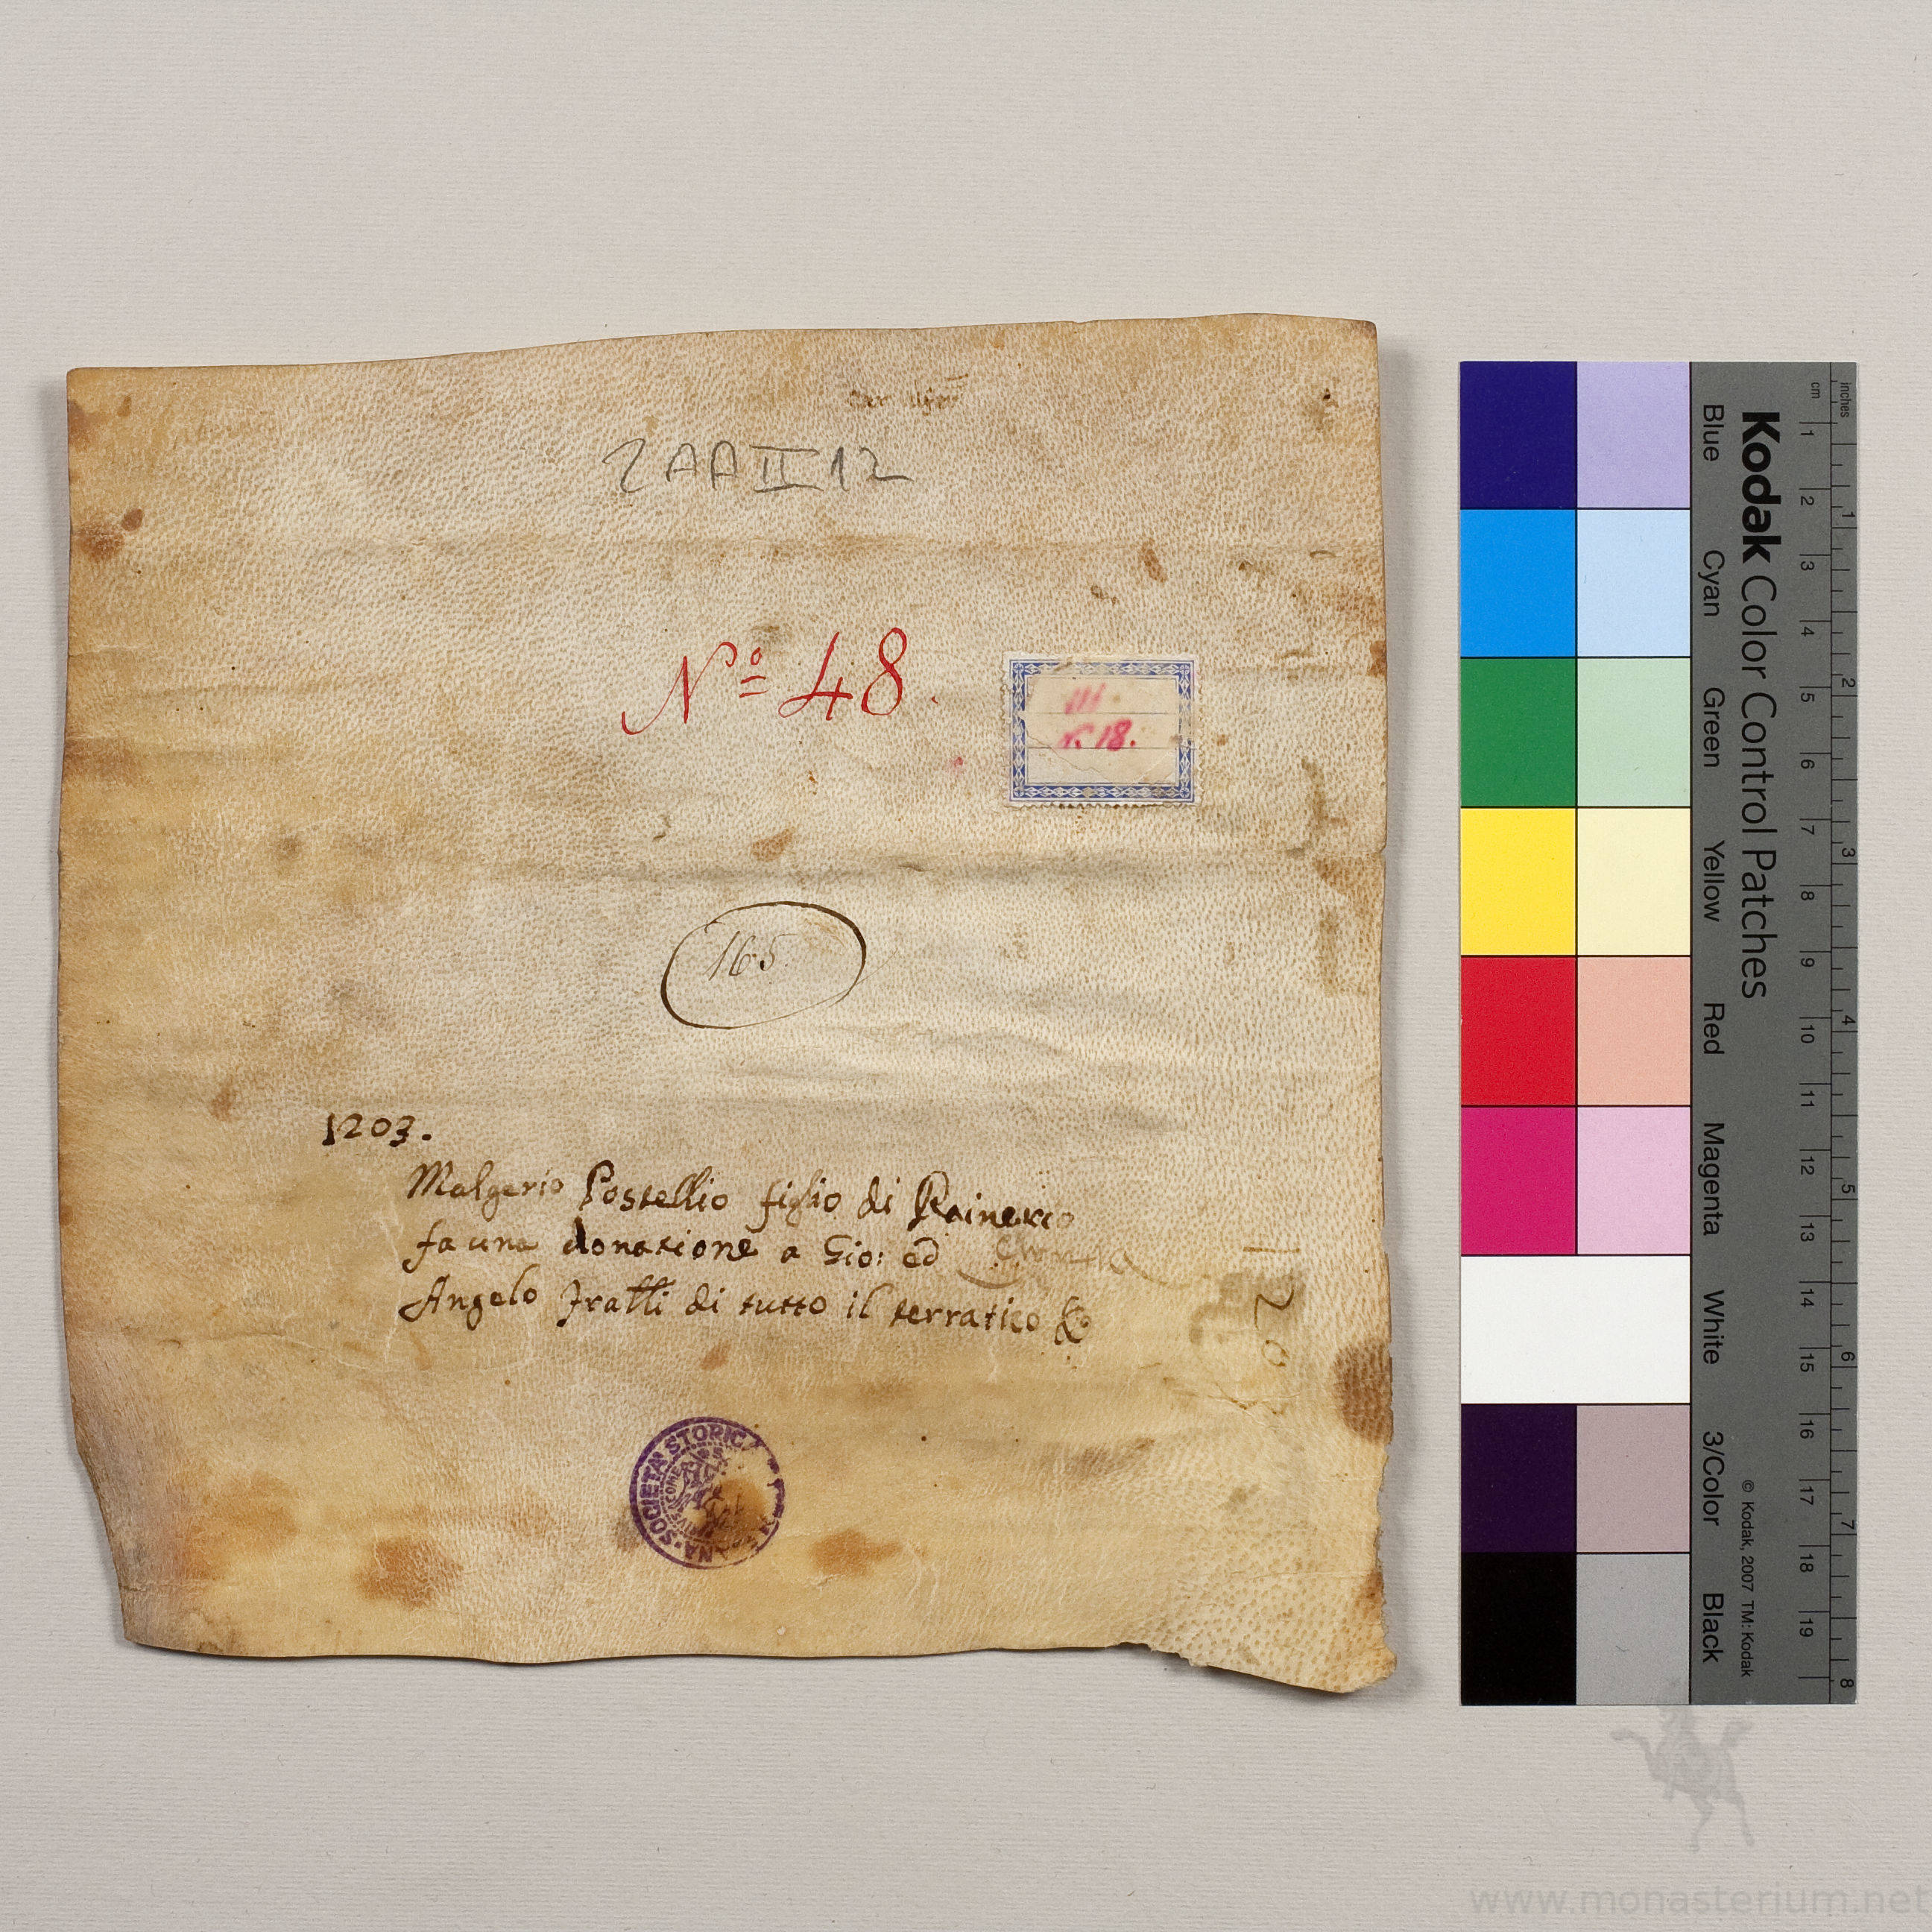 2 AA II 12
Nº 48.
III
N. 18.
165.
1203.
Malgerio Postellio figlio di Rainerio
fa una donatione a Gio: ed
Angelo fratelli di tutto il terratico &c
1203
SOCIETÀ STORICA
Kodak Color Control Patches
Blue
Cyan
Green
Yellow
Red
Magenta
White
3/Color
Black
© Kodak, 2007 TM: Kodak
cm 1 2 3 4 5 6 7 8 9 10 11 12 13 14 15 16 17 18 19
inches 1 2 3 4 5 6 7 8
www.monasterium.net